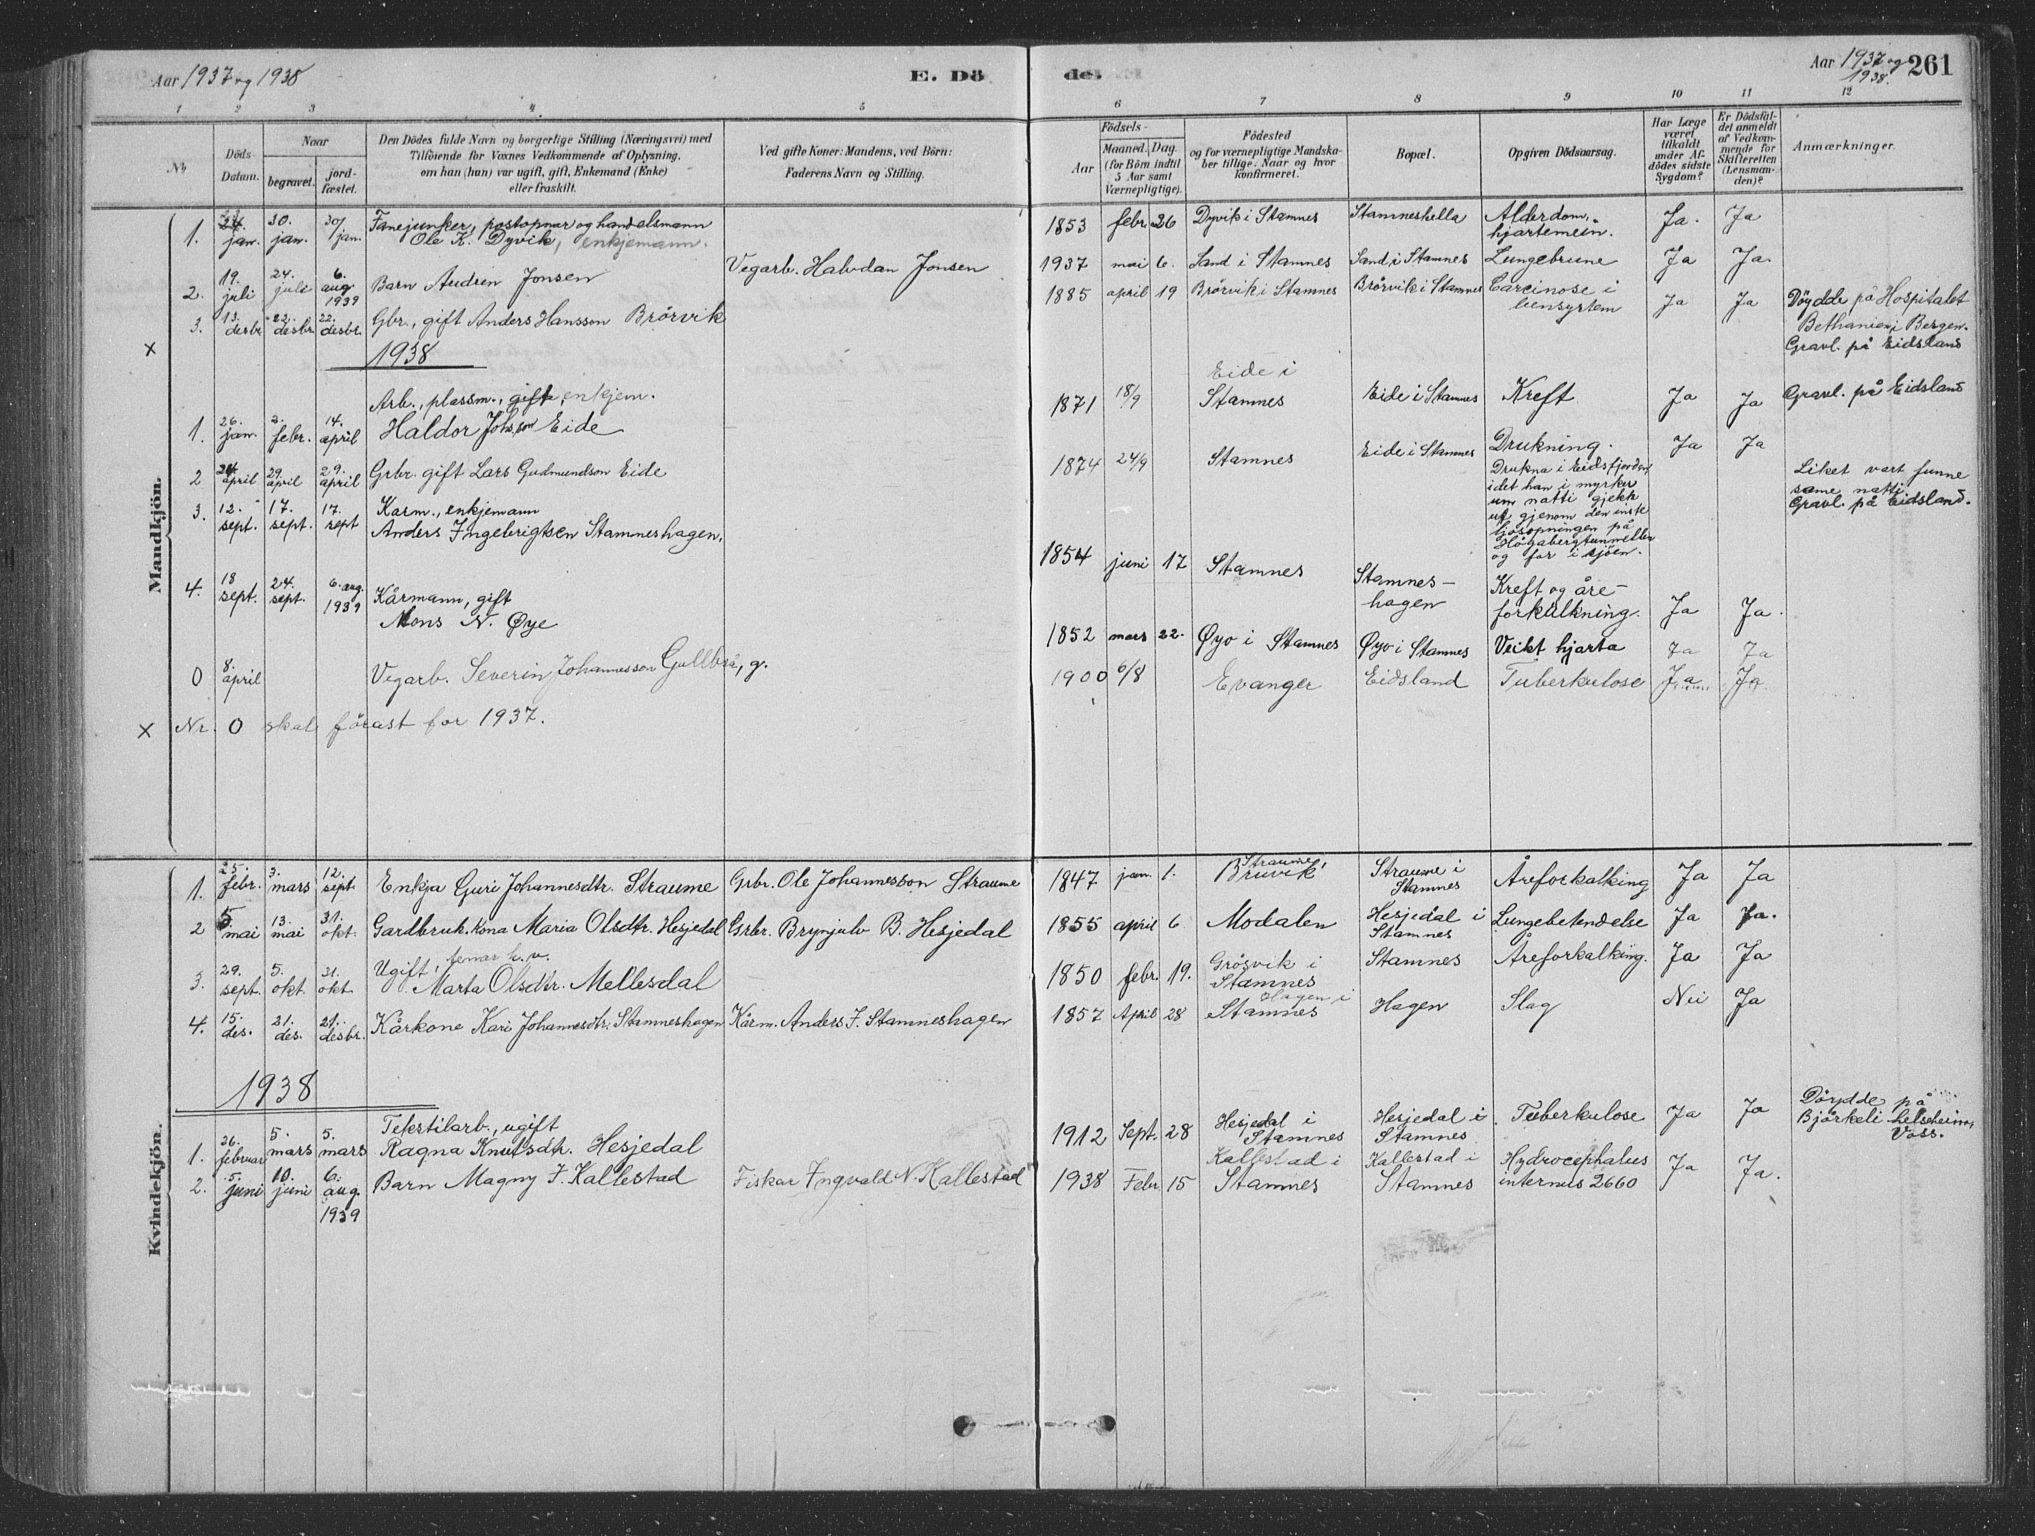 Aar 1937 og 1938
E. Dö
de.
Aar 1937 og 1938. 261
1 2 3 4 5 6 7 8 9 10 11 12
No
Döds-Datum.
Naar
begravet.
jord-fæstet.
Den Dödes fulde Navn og borgerlige Stilling (Næringsvei) med
Tilföiende for Voxnes Vedkommende af Oplysning,
om han (hun) var ugift, gift, Enkemand (Enke)
eller fraskilt.
Ved gifte Koner: Mandens, ved Börn:
Faderens Navn og Stilling.
Födsels-
Aar
Maaned. Dag.
(for Börn indtil
5 Aar samt
Værnepligtige).
Födested
og for værnepligtige Mandska-
ber tillige: Naar og hvor
konfirmeret.
Bopæl.
Opgiven Dödsaarsag.
Har Læge
været
tilkaldt
under Af-
dödes sidste
Sygdom?
Er Dödsfal-
det anmeldt
af Vedkom-
mende for
Skifteretten
(Lensman-
den)?
Anmærkninger.
Mandkjön.
1. 24. jan. 30. jan. 30/jan. Fanejunker, postopnar og handelsmann
Ole K. Dyvik, enkjemann. 1853 febr. 26 Dyvik i Stamnes Stamneshella Alderdom, hjartemein. Ja. Ja
2. 19. juli 24. juli 6. aug 1939 Barn Audien Jonsen Vegarb. Halvdan Jonsen 1937 mai 6. Sand i Stamnes Sand i Stamnes Lungebrune Ja Ja.
3. 13. desbr 22. desbr. 22. desbr. Gbr., gift Anders Hansson Brörvik 1885 april 19 Brörvik i Stamnes Brörvik i Stamnes Carcinose i Ja Ja Döydde på Hospitalet
Bethanien i Bergen.
Gravl. på Eidsland
x
1938
1. 26. jan. 2. febr. 14. april Arb., plassm., gift, enkjem.
Haldor Johs,son Eide 1871 18/9 Eide i Stamnes Eide i Stamnes Kreft Ja Ja Gravl. på Eidsland
2 24 april 29. april 29. april Grbr. gift Lars Gudmundson Eide 1874 24/9 Stamnes Eide i Stamnes Drukning. Ja Ja
Drukna i Eidsfjorden
idet han i myrker
um natti gjekk
ut gjenom den inste
ljosopningen på
Högabergtunnellen
og for i sjöen.
Liket vart funne
same natti.
Gravl. på Eidsland.
3. 12. sept. 17. sept. 17. sept Karm., enkjemann
Anders Ingebrigtsen Stamneshagen. 1854 juni 17 Stamnes Stamnes-hagen Kreft og åre-forkalkning. Ja Ja.
4. 18 sept. 24. sept. 6. aug. 1939 Kårmann, gift
Mons N. Øye 1852 mars 22. Øyo i Stamnes Øyo i Stamnes Veikt hjarta Ja Ja
0 8. april Vegarb. Severin Johannesson Gullbrå, g. 1900 6/8 Evanger Eidsland Tuberkulose Ja Ja.
x Nr. 0 skal förast for 1937.
Kvindekjön.
1. 25. febr. 3. mars 12. sept. Enkja Guri Johannesdtr. Straume Grbr. Ole Johannesson Straume 1847 jan. 1. Straume, Bruvik Straume i Stamnes Åreforkalking Ja Ja
2 5 mai 13. mai 31. okt. Gardbruk.kona Maria Olsdtr. Hesjedal Grbr. Brynjulv B. Hesjedal 1855 april 6 Modalen Hesjedal i Stamnes Lungebetendelse Ja Ja.
3. 29. sept. 5. okt. 31. okt. Ugift,
Marta Olsdtr. Mellesdal 1850 febr. 19. Grösvik i Stamnes Stamnes Åreforkalking. Ja Ja
4. 15. des. 21. des. 21. desbr. Kårkone Kari Johannesdtr. Stamneshagen Kårm. Anders I. Stamneshagen 1857 April 28 Hagen i Stamnes Hagen Slag Nei Ja
1938
1. 26. februar 5. mars 5. mars Tekstilarb., ugift
Ragna Knutsdtr. Hesjedal 1912 Sept. 28 Hesjedal i Stamnes Hesjedal i Stamnes Tuberkulose Ja Ja Döydde på
Bjørkeli helseheim,
Voss.
2. 5. juni 10. juni 6. aug. 1939 Barn Magny I. Kallestad Fiskar Ingvald N. Kallestad 1938 Febr. 15 Kallestad i Stamnes Kallestad i Stamnes Hydrocephalus internus 2660 Ja Ja.